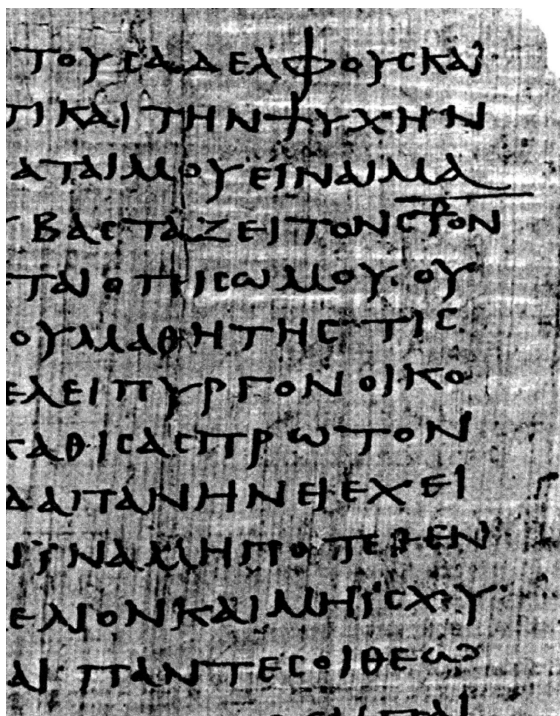 ΤΟΥϹ ΑΔΕΛΦΟΥϹ ΚΑΙ
ΤΙ ΚΑΙ ΤΗΝ ΨΥΧΗΝ
ΑΤΑΙ ΜΟΥ ΕΙΝΑΙ ΜΑ
ΒΑϹΤΑΖΕΙ ΤΟΝ Ϲ⳨ΟΝ
ΤΑΙ ΟΠΙϹΩ ΜΟΥ ΟΥ
ΟΥ ΜΑΘΗΤΗϹ ΤΙϹ
ΕΛΕΙ ΠΥΡΓΟΝ ΟΙΚΟ
ΚΑΘΙϹΑϹ ΠΡΩΤΟΝ
ΔΑΠΑΝΗΝ ΕΙ ΕΧΕΙ
ΙΝΑ ΜΗΠΟΤΕ ΘΕΝ
ΕΛΙΟΝ ΚΑΙ ΜΗ ΙϹΧΥ
ΑΙ ΠΑΝΤΕϹ ΟΙ ΘΕΩ